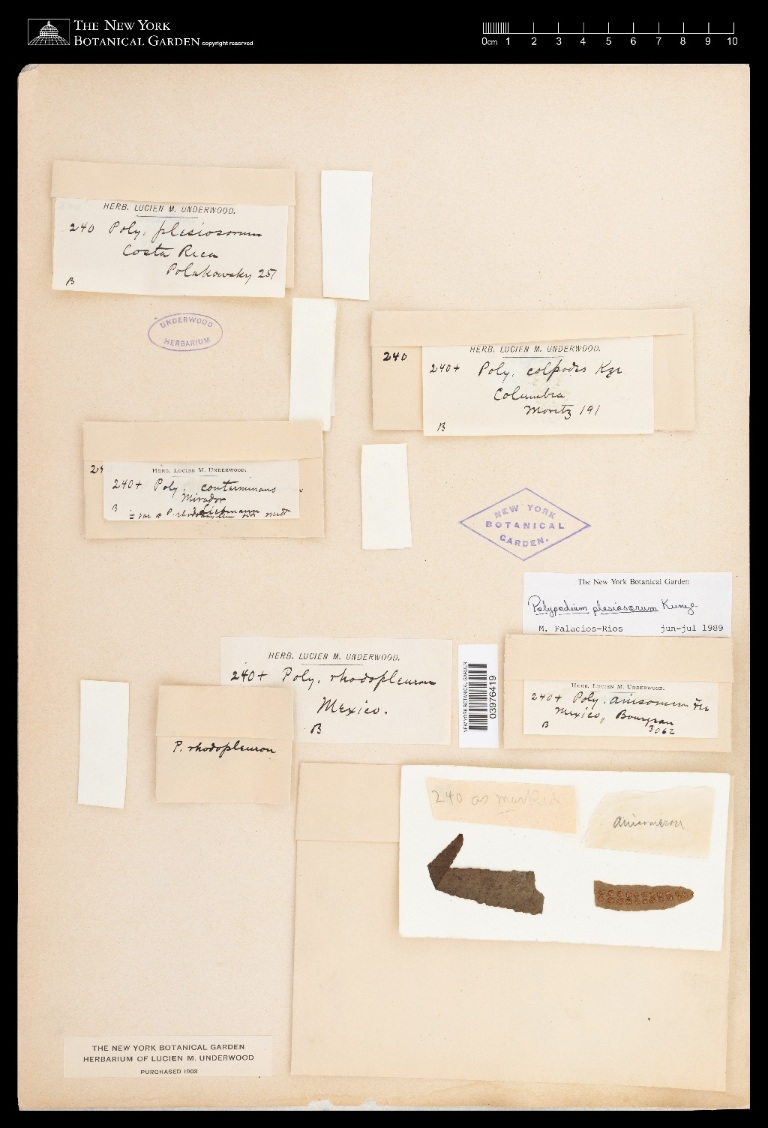 THE NEW YORK
BOTANICAL GARDEN copyright reserved
0cm 1 2 3 4 5 6 7 8 9 10
HERB. LUCIEN M. UNDERWOOD.
240 Poly. plesiosorum
Costa Rica
Polakowsky 257
B
UNDERWOOD
HERBARIUM
240
HERB. LUCIEN M. UNDERWOOD.
240+ Poly. colpodes Kze
Columbia
Moritz 191
B
HERB. LUCIEN M. UNDERWOOD.
240+ Poly. conterminans
Mirador
Liebmann
B
NEW YORK
BOTANICAL
GARDEN.
The New York Botanical Garden
Polypodium plesiosorum Kunze
M. Palacios-Rios jun-jul 1989
HERB. LUCIEN M. UNDERWOOD.
240+ Poly. rhodopleuron
Mexico.
B
NEW YORK BOTANICAL GARDEN
03976419
HERB. LUCIEN M. UNDERWOOD.
240+ Poly. anisomerum
Mexico, Bourgeau
B 3062
P. rhodopleuron
240 as
THE NEW YORK BOTANICAL GARDEN
HERBARIUM OF LUCIEN M. UNDERWOOD
PURCHASED 1908